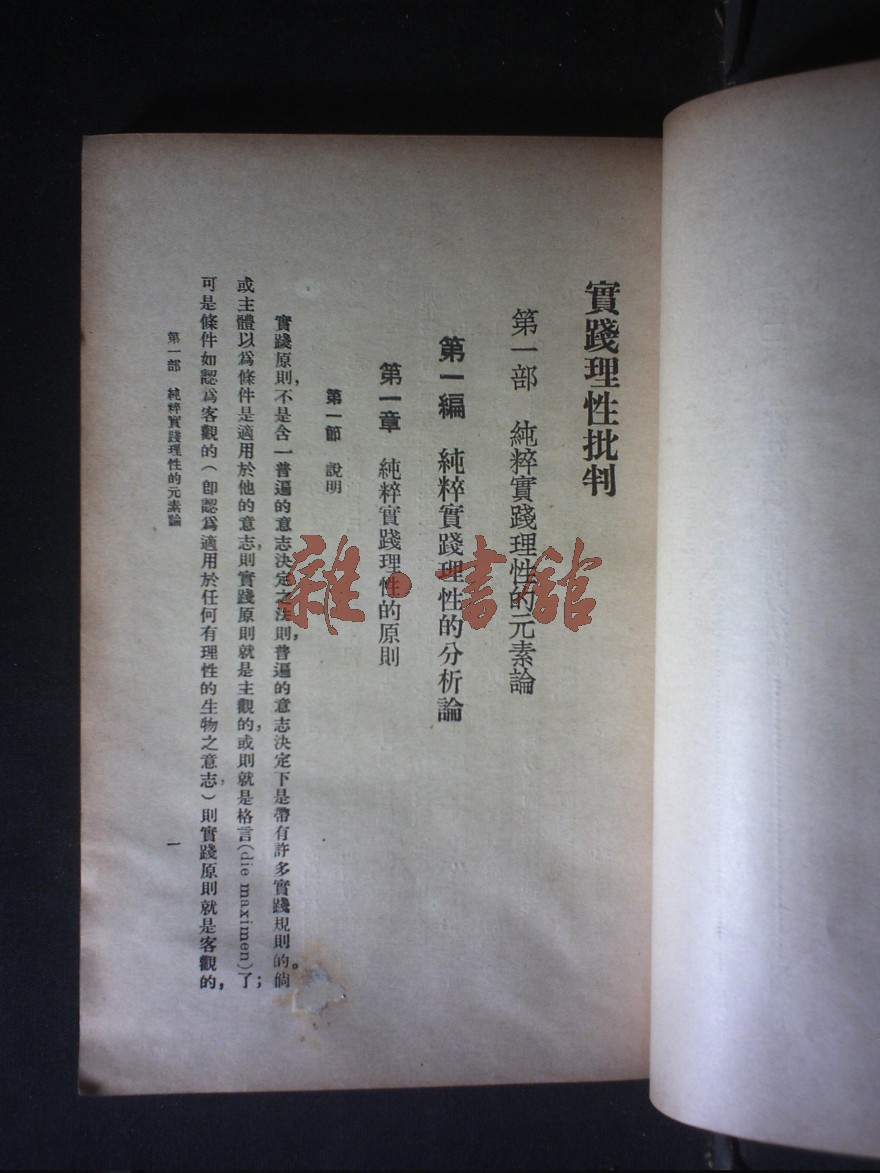 實踐理性批判
第一部 純粹實踐理性的元素論
第一編 純粹實踐理性的分析論
第一章 純粹實踐理性的原則
第一節 說明
實踐原則,不是含一普遍的意志決定之法則,普遍的意志決定下是帶有許多實踐規則的。倘
或主體以爲條件是適用於他的意志,則實踐原則就是主觀的,或則就是格言(die maximen)了;
可是條件如認爲客觀的(卽認爲適用於任何有理性的生物之意志,)則實踐原則就是客觀的,
第一部 純粹實踐理性的元素論
一
雜·書館